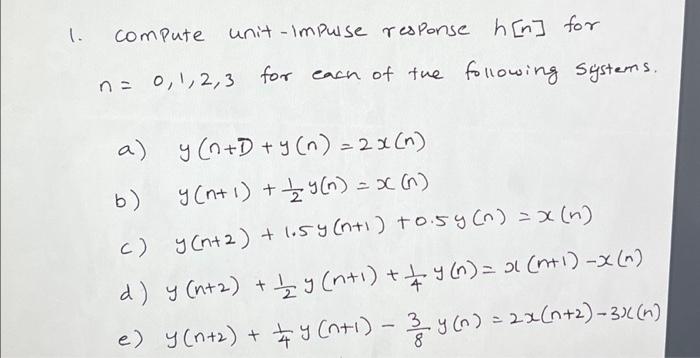 1. compute unit-impulse response h[n] for
n = 0,1,2,3 for each of the following systems.
a) y(n+1) + y(n) = 2x(n)
b) y(n+1) + 1/2 y(n) = x(n)
c) y(n+2) + 1.5y(n+1) + 0.5y(n) = x(n)
d) y(n+2) + 1/2 y(n+1) + 1/4 y(n) = x(n+1) - x(n)
e) y(n+2) + 1/4 y(n+1) - 3/8 y(n) = 2x(n+2) - 3x(n)